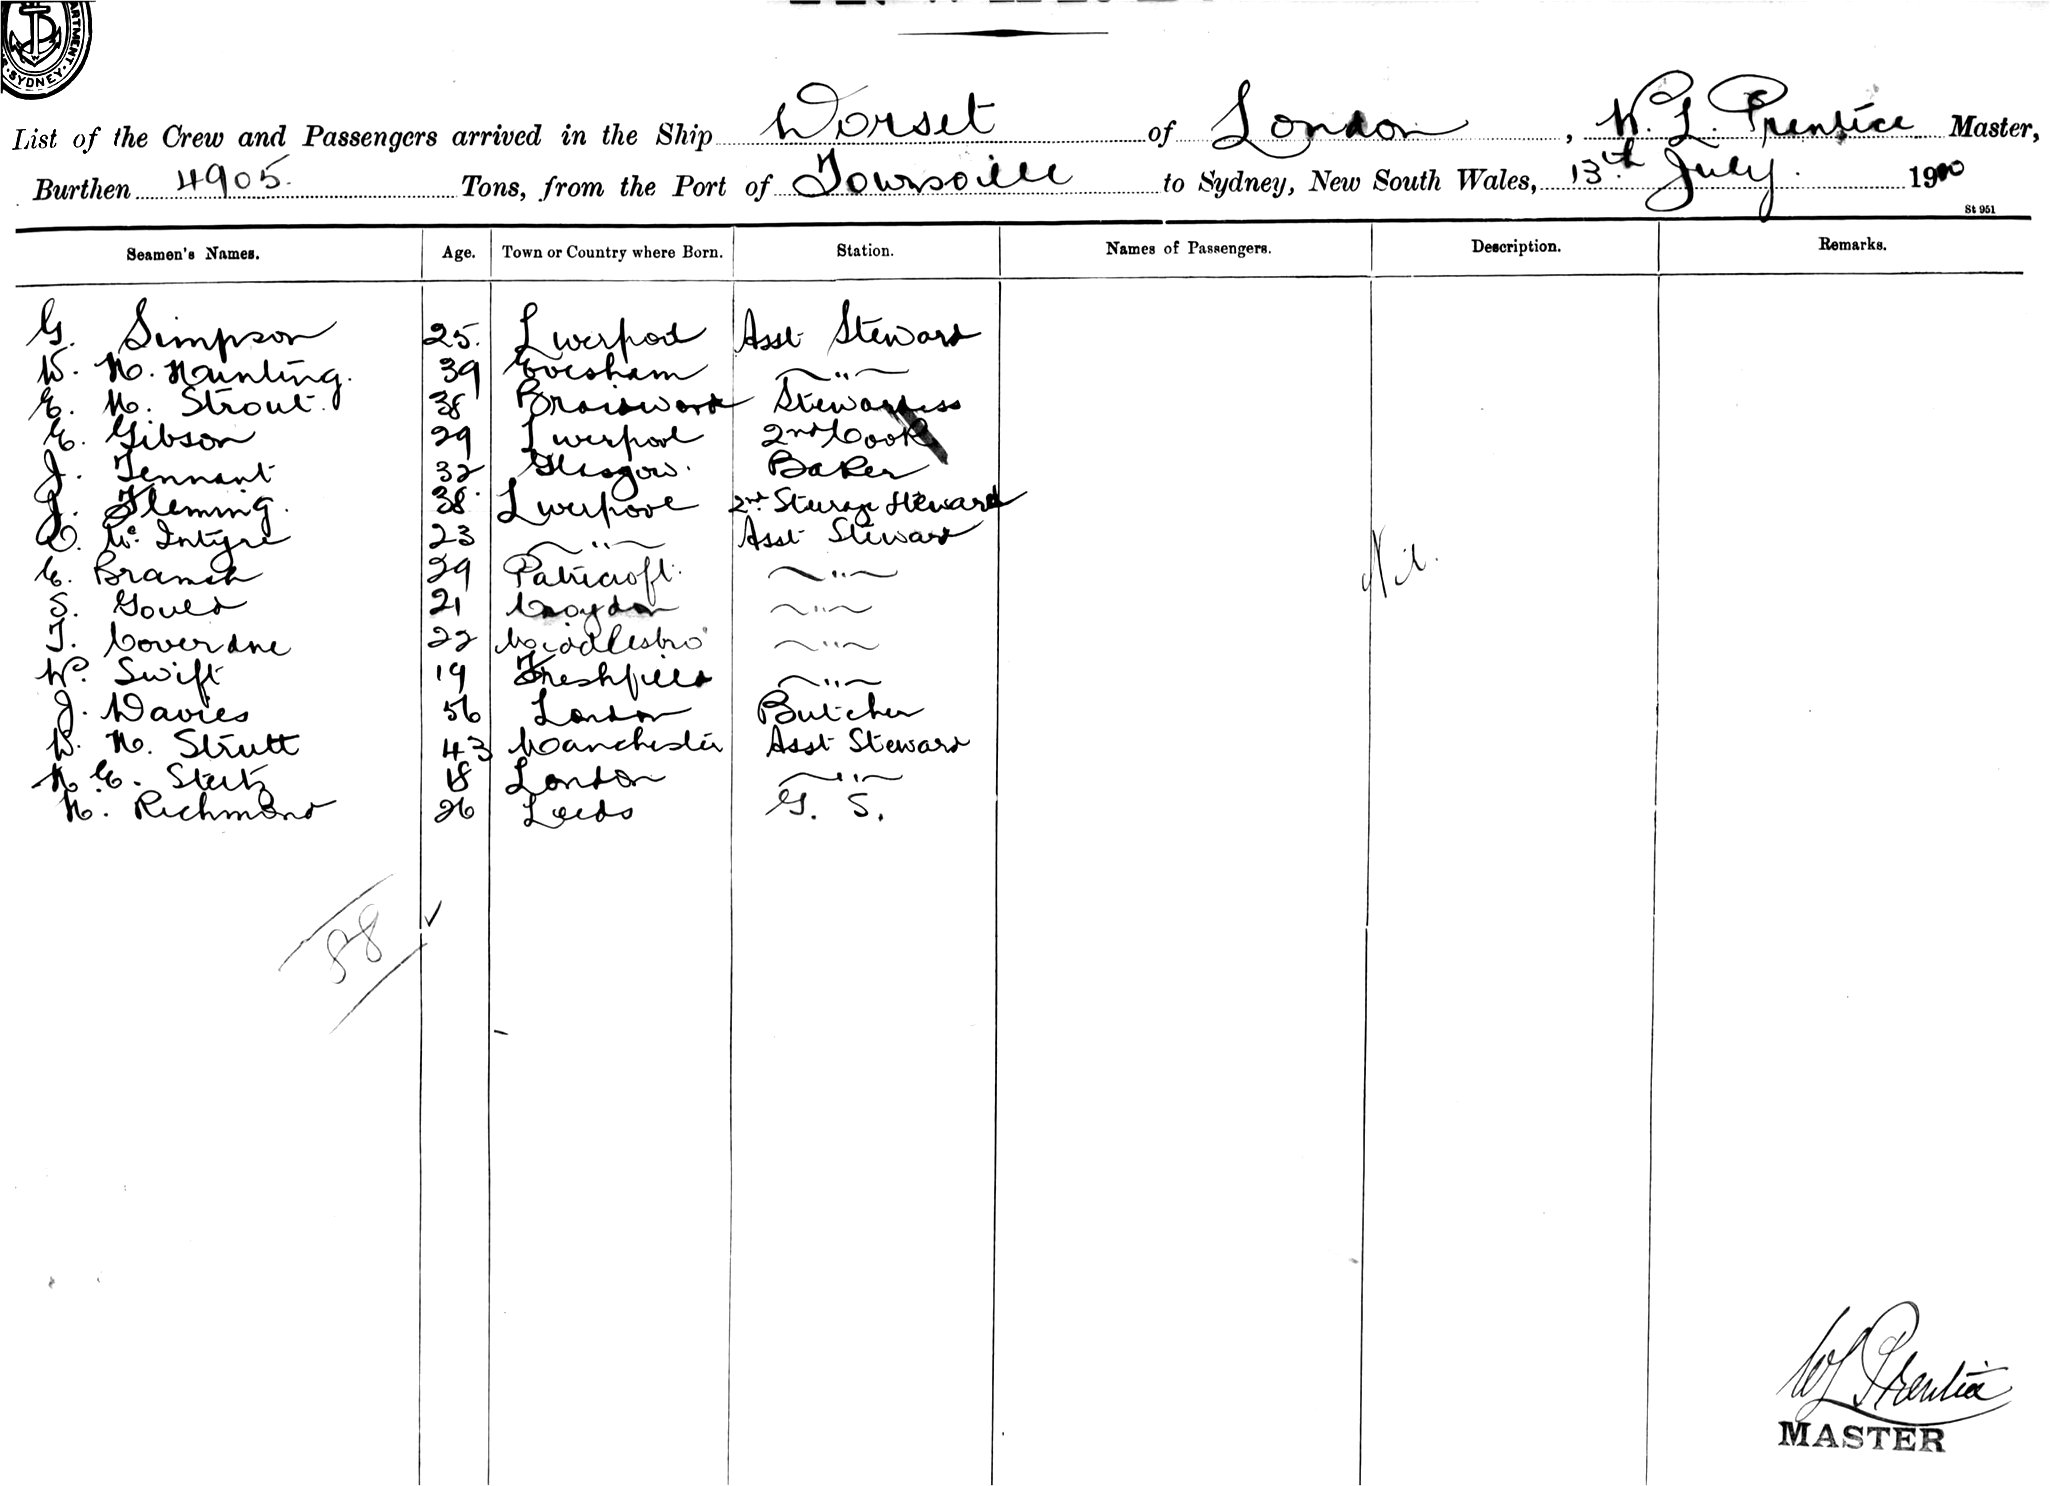 ARTMENT
SYDNEY.
List of the Crew and Passengers arrived in the Ship Dorset of London, W. L. Prentice Master,
Burthen 4905. Tons, from the Port of Townsville to Sydney, New South Wales, 13th July. 1910
St 951
Seamen's Names. Age. Town or Country where Born. Station. Names of Passengers. Description. Remarks.
G. Simpson 25. Liverpool Asst Steward
W. H. Hunting. 39 Evesham "
E. M. Strout. 38 Braidwood Stewardess
E. Gibson 29 Liverpool 2nd Cook
J. Tennant 32 Glasgow. Baker
J. Fleming. 38 Liverpool 2nd Steerage Steward
D. McIntyre 23 " Asst Steward
E. Bramah 29 Patricroft. "
S. Gould 21 Croydon "
T. Coverdale 22 Middlesbro "
W. Swift 19 Freshfield "
J. Davies 56 London Butcher
W. H. Strutt 43 Manchester Asst Steward
H. E. Steitz 18 London "
H. Richmond 26 Leeds G. S.
Nil.
88
W L Prentice
MASTER